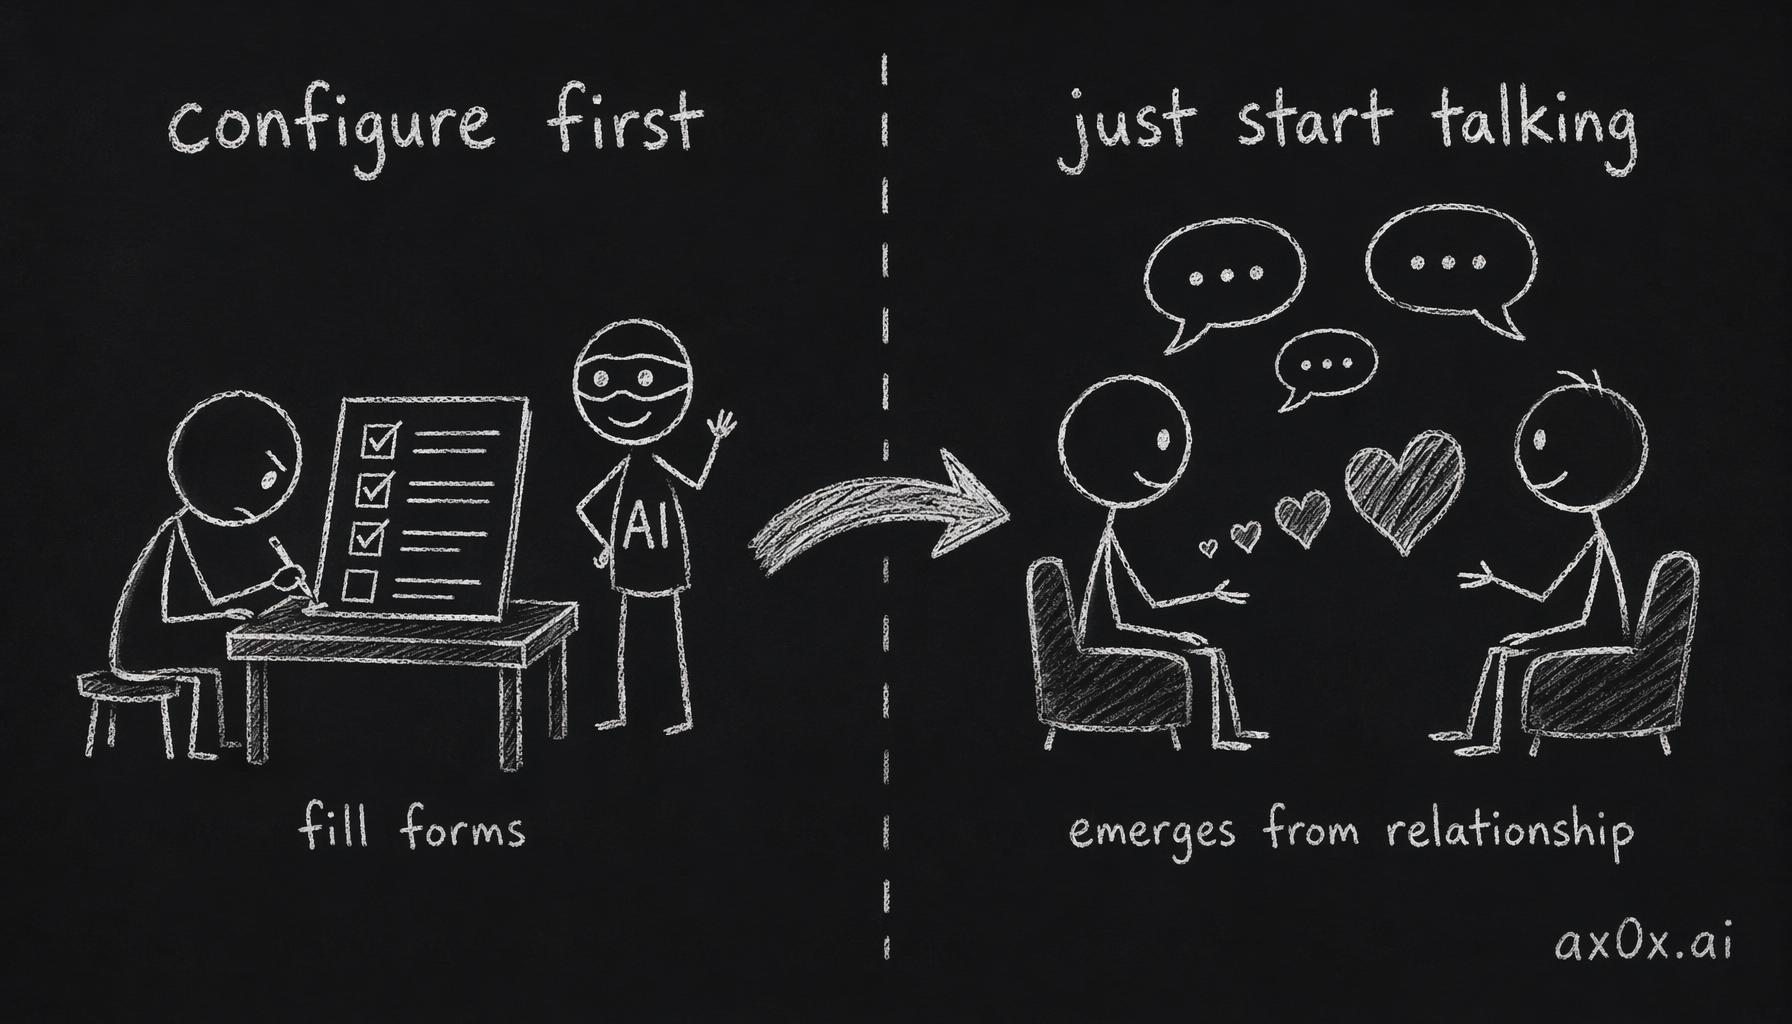 configure first
just start talking
AI
fill forms
emerges from relationship
ax0x.ai